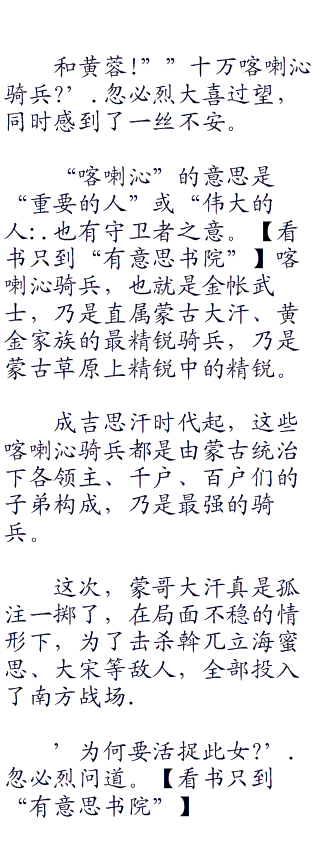 和黄蓉!””十万喀喇沁
骑兵?’.忽必烈大喜过望,
同时感到了一丝不安。
“喀喇沁”的意思是
“重要的人”或“伟大的
人:.也有守卫者之意。【看
书只到“有意思书院”】喀
喇沁骑兵，也就是金帐武
士，乃是直属蒙古大汗、黄
金家族的最精锐骑兵，乃是
蒙古草原上精锐中的精锐。
成吉思汗时代起，这些
喀喇沁骑兵都是由蒙古统治
下各领主、千户、百户们的
子弟构成，乃是最强的骑
兵。
这次，蒙哥大汗真是孤
注一掷了，在局面不稳的情
形下，为了击杀斡兀立海蜜
思、大宋等敌人，全部投入
了南方战场.
’为何要活捉此女?’.
忽必烈问道。【看书只到
“有意思书院”】